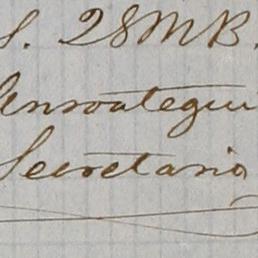 S. 28 M B.
Unroategui
Secretario